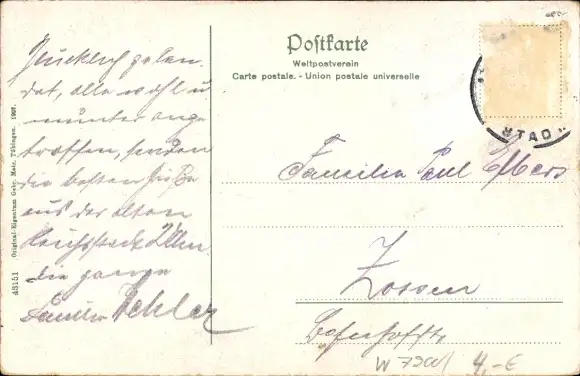 Postkarte
Weltpostverein
Carte postale. - Union postale universelle
Glücklich gelan
det, alle wohl u.
munter ange
troffen, senden
die besten Grüße
aus der alten
Reichsstadt Ulm
die ganze
Familie
Familie Paul
Zossen
Bahnhofstr.
43151 Original-Eigentum Gebr. Metz, Tübingen. 1907.
STAD
4,- €